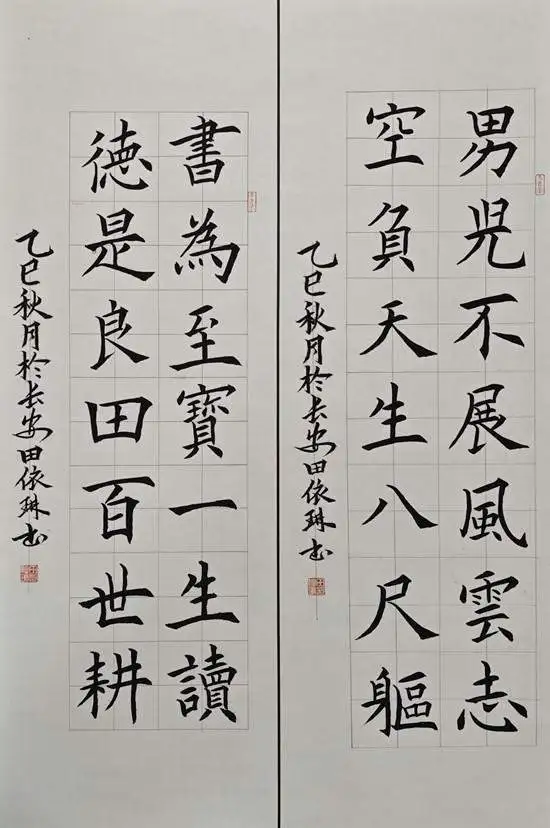 男児不展風雲志
空負天生八尺軀
乙巳秋月於长安田依琳书
書為至寶一生讀
德是良田百世耕
乙巳秋月於长安田依琳书